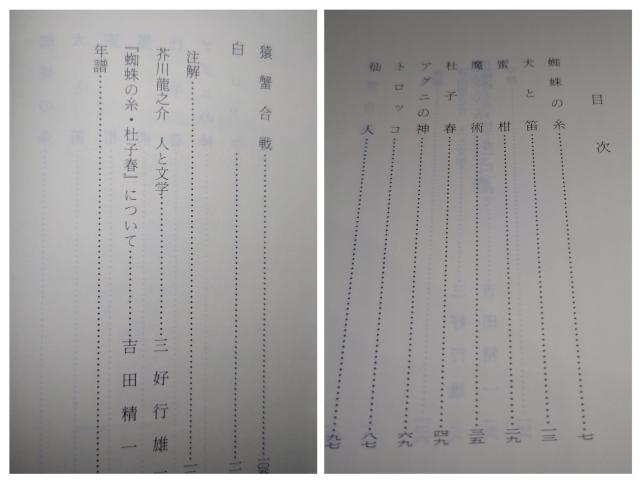 目次
蜘蛛の糸 七
犬と笛 一三
蜜柑 二九
魔術 三五
杜子春 四九
アグニの神 六九
トロッコ 八七
仙人 九七
猿蟹合戦 一〇五
白
注解
芥川龍之介 人と文学 三好行雄
『蜘蛛の糸・杜子春』について 吉田精一
年譜